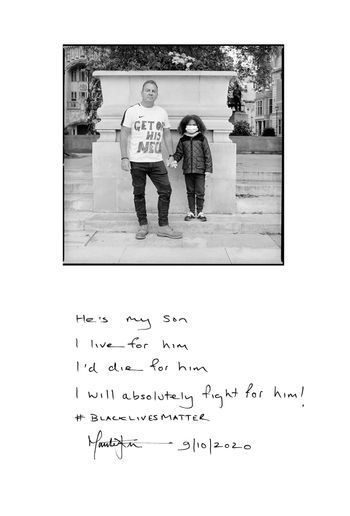 GET OF
HIS
NECK
He's my Son
I live for him
I'd die for him
I will absolutely fight for him!
# BLACKLIVESMATTER
9/10/2020